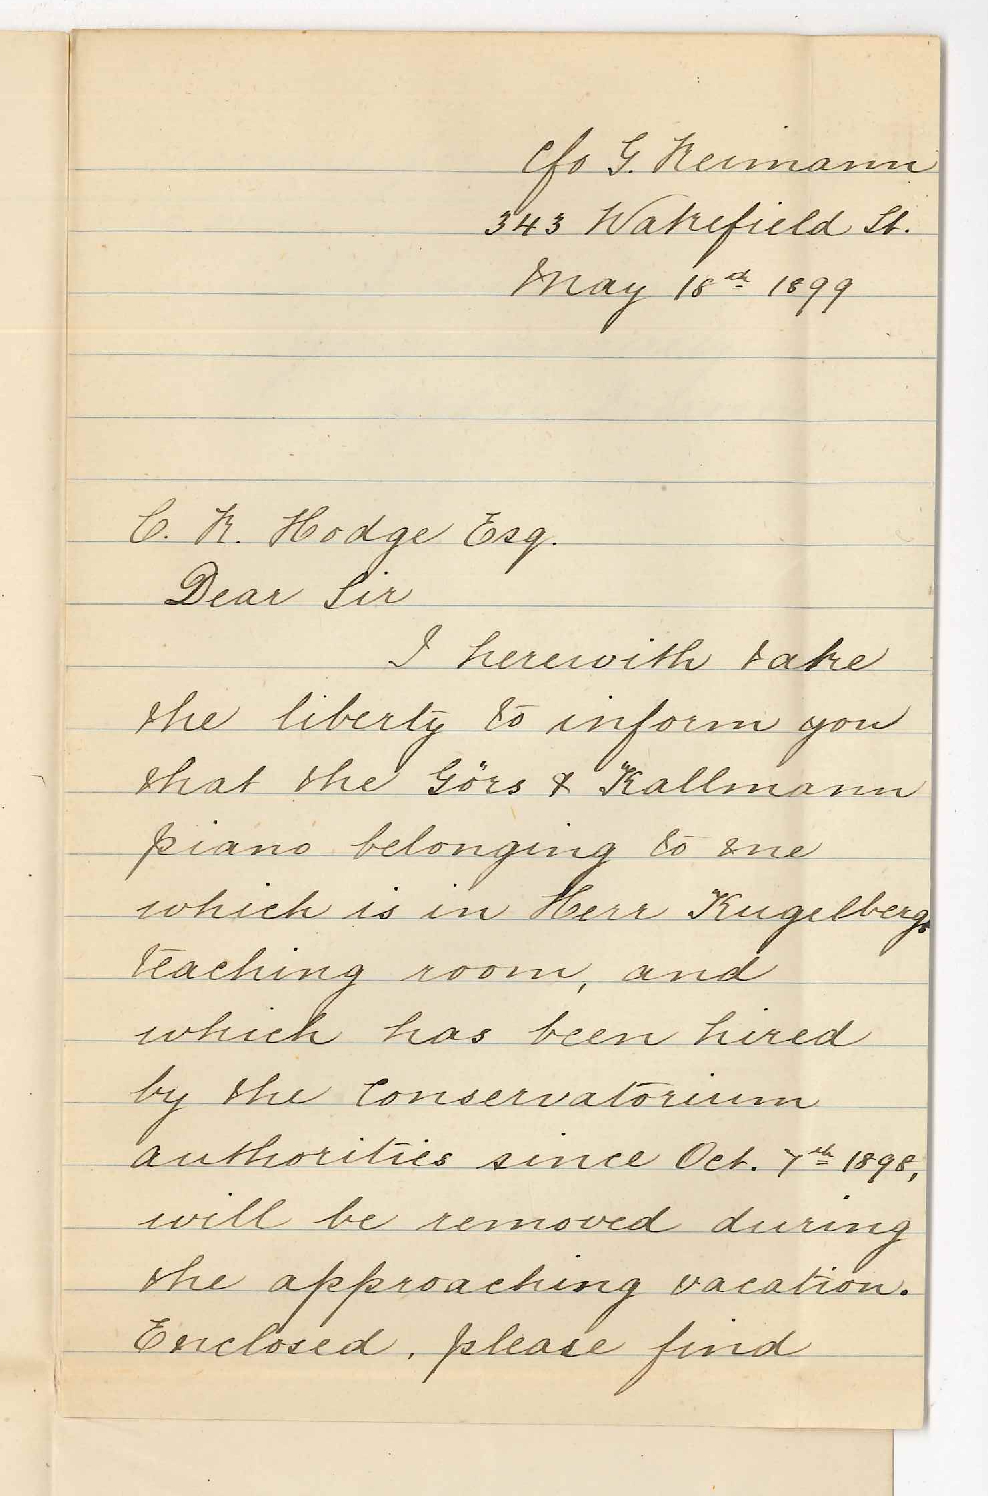 c/o G. Reimann
343 Wakefield St.
May 18th 1899
C. R. Hodge Esq.
Dear Sir
I herewith take
the liberty to inform you
that the Görs & Kallmann
piano belonging to me
which is in Herr Kugelbergs
teaching room, and
which has been hired
by the Conservatorium
authorities since Oct. 7th 1898,
will be removed during
the approaching vacation.
Enclosed, please find